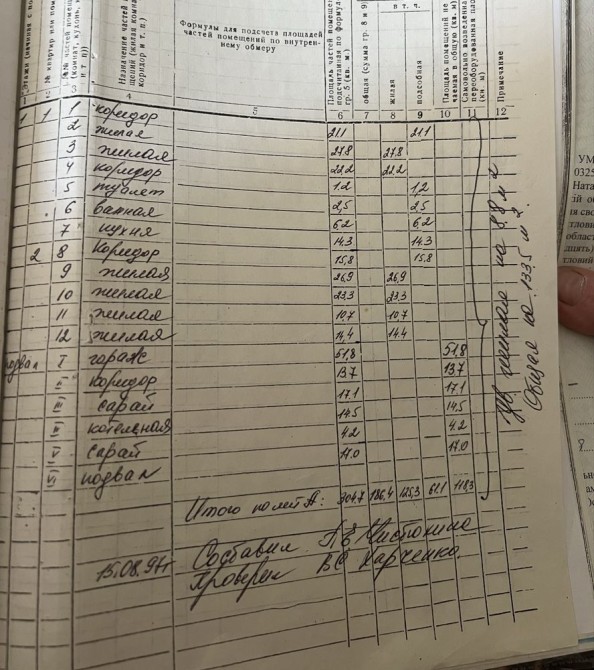 Этажи (начиная с по
№ квартир или пом
№№ частей помещен
(комнат, кухонь, к
и т. п.)
Назначения частей
щений (жилая комна
коридор и т. п.)
Формулы для подсчета площадей
частей помещений по внутрен-
нему обмеру
Площадь частей помещен
подсчитанная по формул
гр. 5 (кв. м.)
общая (сумма гр. 8 и 9)
в т. ч.
жилая
подсобная
Площадь помещений не
аемая в общую (кв. м)
Самовольно возведенна
переоборудованная пло
(кв. м)
Примечание
3 4 5 6 7 8 9 10 11 12
1 1 1 коридор 21.1 21.1
2 жилая 27.8 27.8
3 жилая 22.2 22.2
4 коридор 1.2 1.2
5 туалет 2,5 2,5
6 ванная 6.2 6.2
7 кухня 14.3 14.3
2 8 коридор 15,8 15.8
9 жилая 26,9 26,9
10 жилая 23,3 23,3
11 жилая 10,7 10,7
12 жилая 14,4 14.4
подвал I гараж 51,8 51,8
II коридор 13.7 13.7
III сарай 17.1 17.1
IV котельная 14.5 14,5
V сарай 4.2 4.2
VI подвал 17.0 17.0
Итого по лит А: 304.7 186,4 125,3 61.1 118,3
15.08.97г Составил Чистокина
Проверен Харченко
на 8,8 м2
Общая на 133,5 м2.
УМ
0325
Ната
област